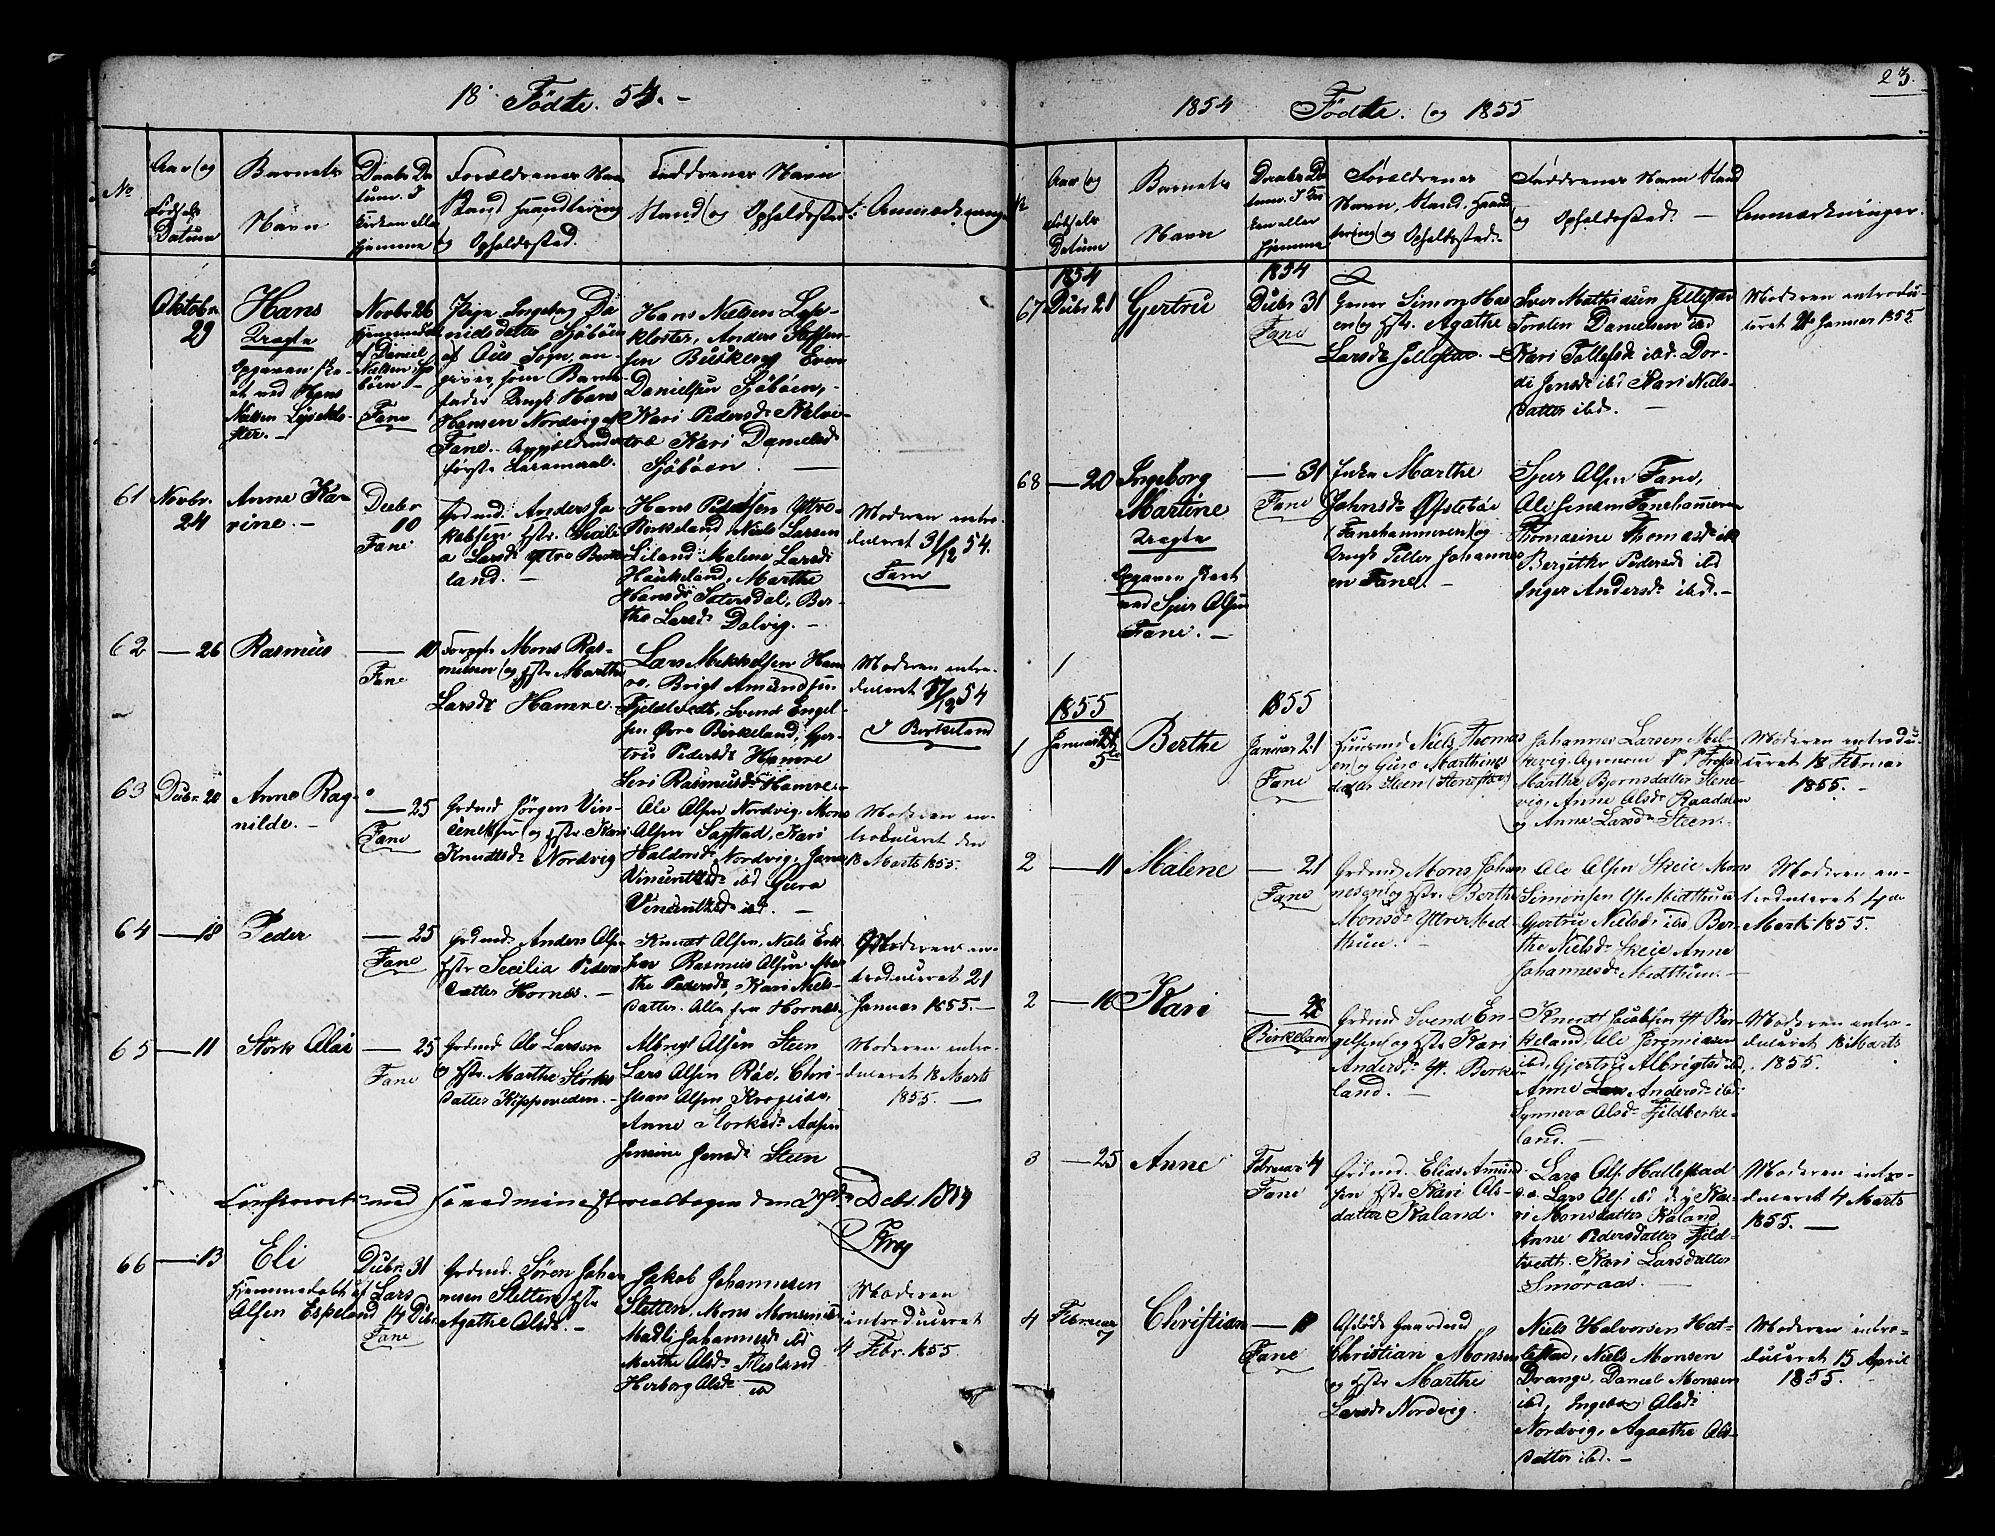 18 Fødte. 54. -
No
Aar og
Fødsels
Datum
Barnets
Navn
Daabs Da-
tum. I
Kirken eller
hjemme
Forældrenes Nav
Stand Haandtering
og Opholdssted.
Faddrenes Navn
Stand og Opholdssted
Anmærkninger
Oktobr.
29
Hans
Uægte
Opgaven ske-
et ved Hans
Nielsen Lysekloster. -
Novbr 26
hjemmedøbt
af Daniel
Nielsen Sjø-
bøen -
Fane
Pige Ingeborg Da-
nielsdatter Sjøbøen
af Aus Sogn, an-
giver som Barne-
fader Ungk Hans
Hansen Nordvig af
Fane.
første Leiermaal.
Hans Nielsen Lyse-
kloster, Anders Steffen-
sen Buskeng Even
Danielsen Sjøbøen,
Kari Pedersd:
Kari Danielsd
Sjøbøen. -
61
Novbr.
24
Anne Ka-
rine. -
Decbr
10
Fane
Grdmd. Anders Ja-
kobsen Hstr. Sicili-
a Larsd: Ytre Birke-
land. -
Hans Pedersen Ytre
Birkeland, Niels Larsen
Liland, Malene Larsd:
Haukeland, Marthe
Hansd: Sætersdal, Ber-
the Larsd: Dalvig. -
Moderen intro-
duceret 31/12 54.
Fane
62
- 26
Rasmus
- 10
Fane
Mons Ras-
mussen og Hstr Marthe
Larsd: Hamre -
Lars Mikkelsen Ham-
re, Brigt Amundsen
Fjeldtvedt, Svend Engel-
sen Øvre Birkeland, Gjer-
tru Pedersd: Hamre
Seri Rasmusd: Hamre -
Moderen intro-
duceret 17/12 54
i Birkeland
63
Decbr. 20
Anne Rag-
nilde. -
- 25
Fane
Grdmd. Jørgen Vin-
centsen og Hstr Kari
Knudtsd: Nordvig
Ole Olsen Nordvig, Mons
Olsen Sagstad, Kari
Haldorsd: Nordvig, Jane
Vincentsd: ibd Guro
Vincentsd: ibd. -
Moderen in-
troduceret den
18 Marts 1855.
64
- 18
Peder
- 25
Fane
Grdmd. Anders Olsen
Hstr Secilia Peders-
datter Hornes. -
Knudt Olsen, Niels Erik-
sen Rasmus Olsen Mar-
the Pedersd:, Kari Niels-
datter. Alle fra Hornes.
Moderen in-
troduceret 21
Januar 1855. -
65
- 11
Størk Olai
- 25
Fane
Grdmd. Ole Larsen
og Hstr. Marthe Størks-
datter Kipperveden. -
Albregt Olsen Steen
Lars Olsen Råe, Chri-
stian Olsen Krogeide,
Anne Størksd:
Jensine Jensd: Steen
Moderen intro-
duceret 18 Marts
1855. -
Confereret med Hovedministerialbogen den Decb. 1854
Krog
66
- 13
Eli
Hjemmedøbt af Lars
Olsen Espeland 14 Decbr.
Decbr. 31
Fane
Grdmd. Søren Johan-
nesen Sletten Hstr
Agathe Olsd: -
Jakob Johannesen
Sletten, Mons Monsen ib
Madli Johannesd: ibd
Marthe Olsd: Flesland
Herborg Olsd: ib
Moderen
introduceret
4 Febr. 1855
23.
1854 Fødte. og 1855
Aar og
Fødsels
Datum
Barnets
Navn
Daabs Da-
tum. I Kir-
ken eller
hjemme
Forældrenes
Navn, Stand, Haand-
tering og Opholdssted.
Faddrenes Navn Stand
og Opholdssted. -
Anmærkninger.
1854
67
Decbr 21
Gjertru
1854
Decbr 31
Fane
Simon Han-
en og Hstr. Agathe
Larsd: Jellestad. -
Iver Mathiasen Jellestad
Torsten Danielsen ibd
Kari Tollefsd: ibd. Dor-
di Jensd: ibd Kari Niels-
datter ibd. -
Moderen introdu-
ceret 21 Januar 1855.
68
- 20
Ingeborg
Martine
Uægte
Opgaven skeet
ved Sjur Olsen
Fane. -
- 31
Fane
Enke Marthe
Johnsd: Øfstebøe
(Fanehammeren) og
Ungk Peller Johannes-
en Fane. -
Sjur Olsen Fane,
Ole Jensen Fanehammeren
Thomasine Thomasd: ib
Bergithe Pedersd: ibd
Inger Andersd: ibd. -
1855
1
Januar
5
Berthe
1855
Januar 21
Fane
Huusmd Niels Thomas-
en og Guro Martins-
datter Steen (Stenestøe)
Johannes Larsen
Marthe Bjornsdatter Stene-
vig, Anne Olsd: Raadalen
og Anne Larsd: Steen. -
Moderen introdu-
ceret 18 Februar
1855. -
2
- 11
Malene
- 21
Fane
Grdmd Mons Johan-
nesen og Hstr. Berthe
Monsd: Ytre Mid-
thun. -
Ole Olsen Skeie Mons
Simonsen Ytre Midthun
Gjertru Nielsd: ibd, Ber-
the Nielsd: Skeie Anne
Johannesd: Midthun. -
Moderen in-
troduceret 4de
Marts 1855. -
2
- 16
Kari
- 28
Birkeland
Grdmd Svend En-
gelsen og Hstr Kari
Andersd: Yt. Birke-
land. -
Knudt Jacobsen Yt Bir-
keland, Ole Jeremiasen
ibd, Gjertru Albrigtsd ibd
Anne Andersd: ibd.
Synneva Olsd: Fjeldbirke-
land. -
Moderen intro-
duceret 18 Marts
1855. -
3
- 25
Anne
Februar 4
Fane
Grdmd. Elias Amund-
sen Hstr Kari Ols-
datter Kaland. -
Lars Ols. Hallestad
Lars Ols. ibd Ka-
ri Monsdatter Kaland
Anne Pedersdatter Fjeld-
tvedt. Kari Larsdatter
Smøraas. -
Moderen intro-
duceret 4 Marts
1855. -
4
Februar
7
Christian
- 18
Fane
Afdøde Gaardmd
Christian Monsen
og Hstr Marthe
Larsd: Nordvig.
Niels Halvorsen Hat-
lestad, Niels Monsen
Drange, Daniel Monsen
ibd, Ingeborg Olsd:
Nordvig, Agathe Ols-
datter ibd. -
Moderen intro-
duceret 15 April
1855. -